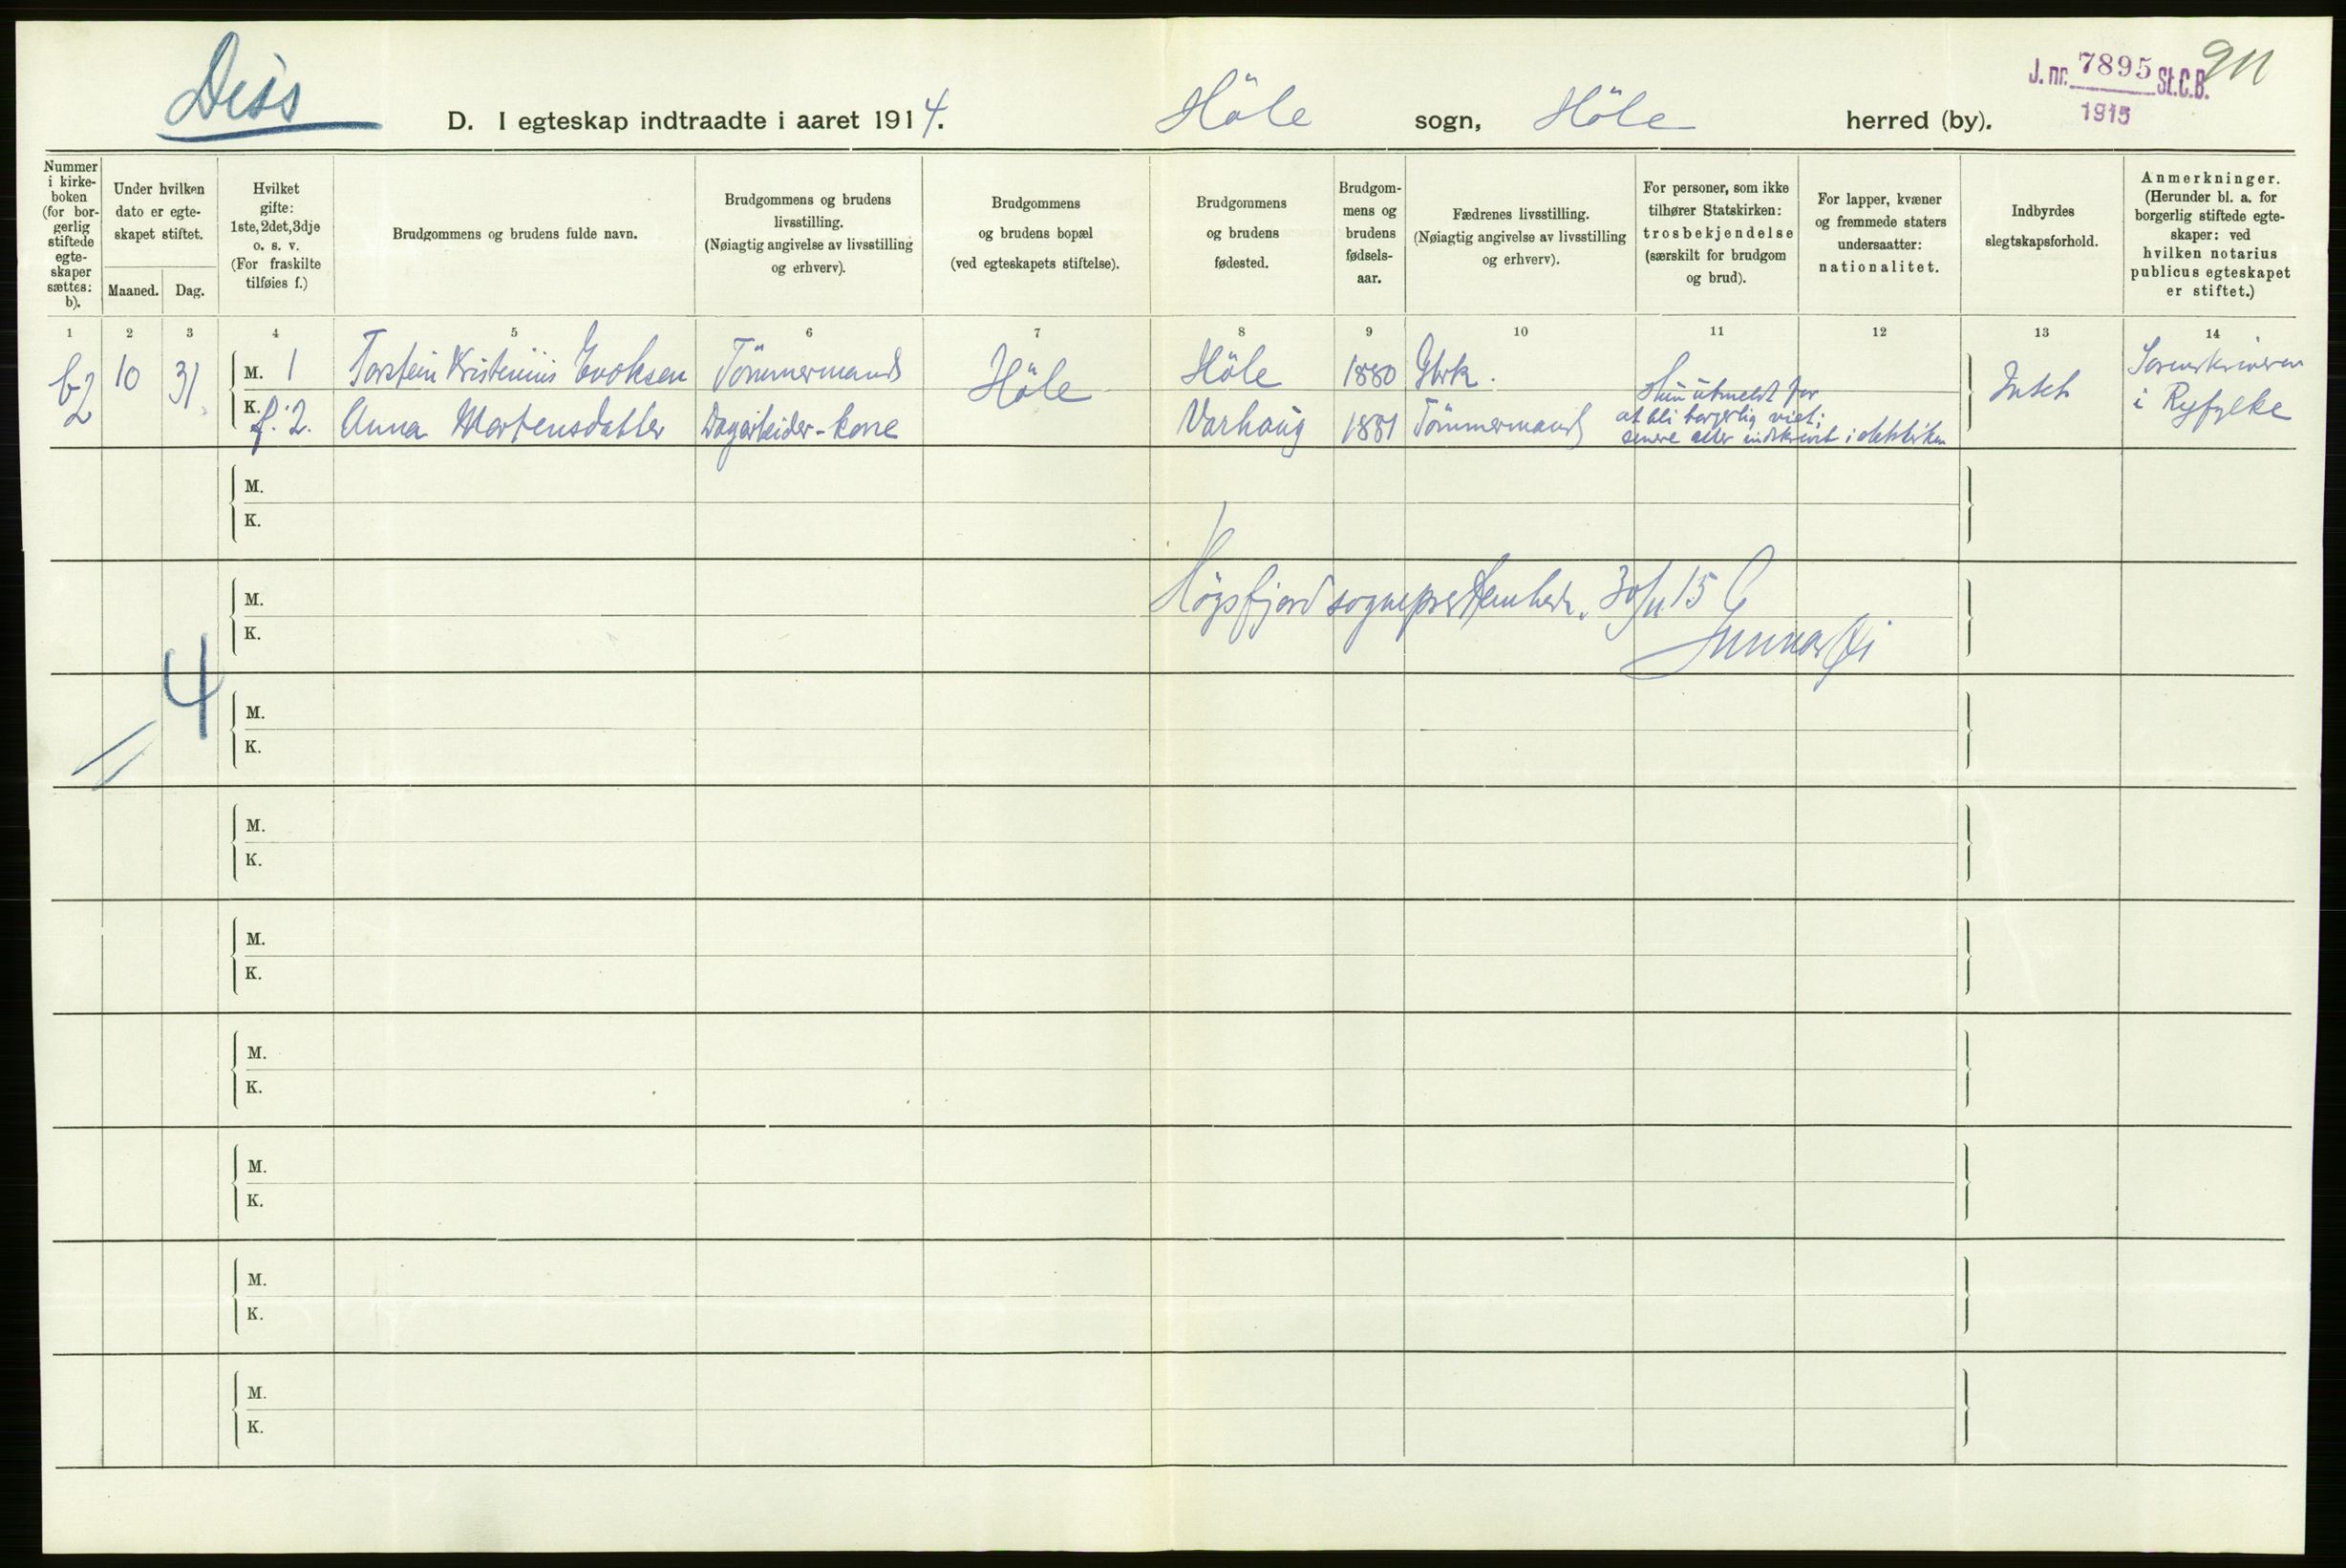 Diss
D. I egteskap indtraadte i aaret 1914.
Höle sogn, Höle herred (by).
J. nr. 7895 St.C.B.
1915
911
Nummer i kirke-boken (for bor-gerlig stiftede egte-skaper sættes: b).
Under hvilken dato er egte-skapet stiftet.
Maaned. Dag.
Hvilket gifte: 1ste, 2det, 3dje o. s. v. (For fraskilte tilføies f.)
Brudgommens og brudens fulde navn.
Brudgommens og brudens livsstilling. (Nøiagtig angivelse av livsstilling og erhverv).
Brudgommens og brudens bopæl (ved egteskapets stiftelse).
Brudgommens og brudens fødested.
Brudgom-mens og brudens fødsels-aar.
Fædrenes livsstilling. (Nøiagtig angivelse av livsstilling og erhverv).
For personer, som ikke tilhører Statskirken: trosbekjendelse (særskilt for brudgom og brud).
For lapper, kvæner og fremmede staters undersaatter: nationalitet.
Indbyrdes slegtskapsforhold.
Anmerkninger. (Herunder bl. a. for borgerlig stiftede egte-skaper: ved hvilken notarius publicus egteskapet er stiftet.)
1 2 3 4 5 6 7 8 9 10 11 12 13 14
b2 10 31
M. 1 Torstein Kristenius Evoksen Tömmermand Höle Höle 1880 Gbrk.
K. f. 2. Anna Martensdatter Dagarbeider-kone Varhaug 1881 Tömmermand
Hun utmeldt for
at bli borgerlig viet;
senere atter indskrevet i
Intet
Sorenskriveren
i Ryfylke
M.
K.
Högsfjord sogneprestembede. 30/11 15
M.
K.
Gunnar
4
M.
K.
M.
K.
M.
K.
M.
K.
M.
K.
M.
K.
M.
K.